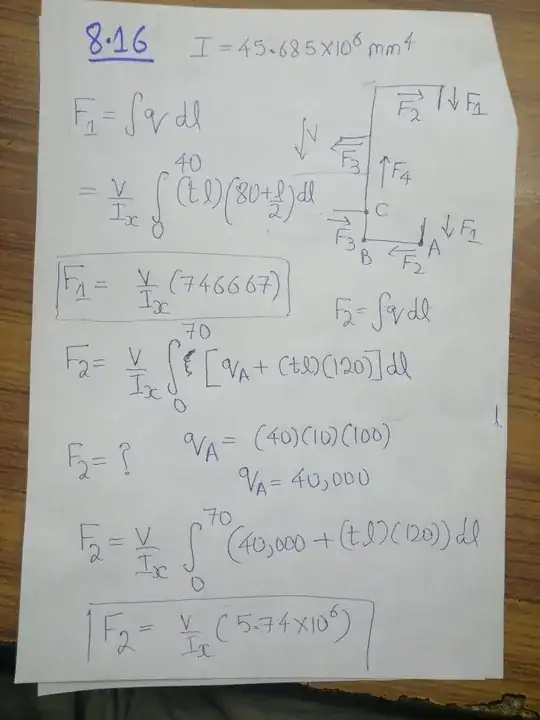 8.16 I = 45.685×10⁶ mm⁴
F₁ = ∫q dl
= V/Iₓ ∫₀⁴⁰ (tl)(80+l/2)dl
F₁ = V/Iₓ (746667)
V
F₂
F₁
F₃
F₄
C
F₃
B
F₂
A
F₁
F₂ = ∫q dl
F₂ = V/Iₓ ∫₀⁷⁰ [q_A + (tl)(120)]dl
F₂ = ? q_A = (40)(10)(100)
q_A = 40,000
F₂ = V/Iₓ ∫₀⁷⁰ (40,000 + (tl)(120))dl
F₂ = V/Iₓ (5.74×10⁶)